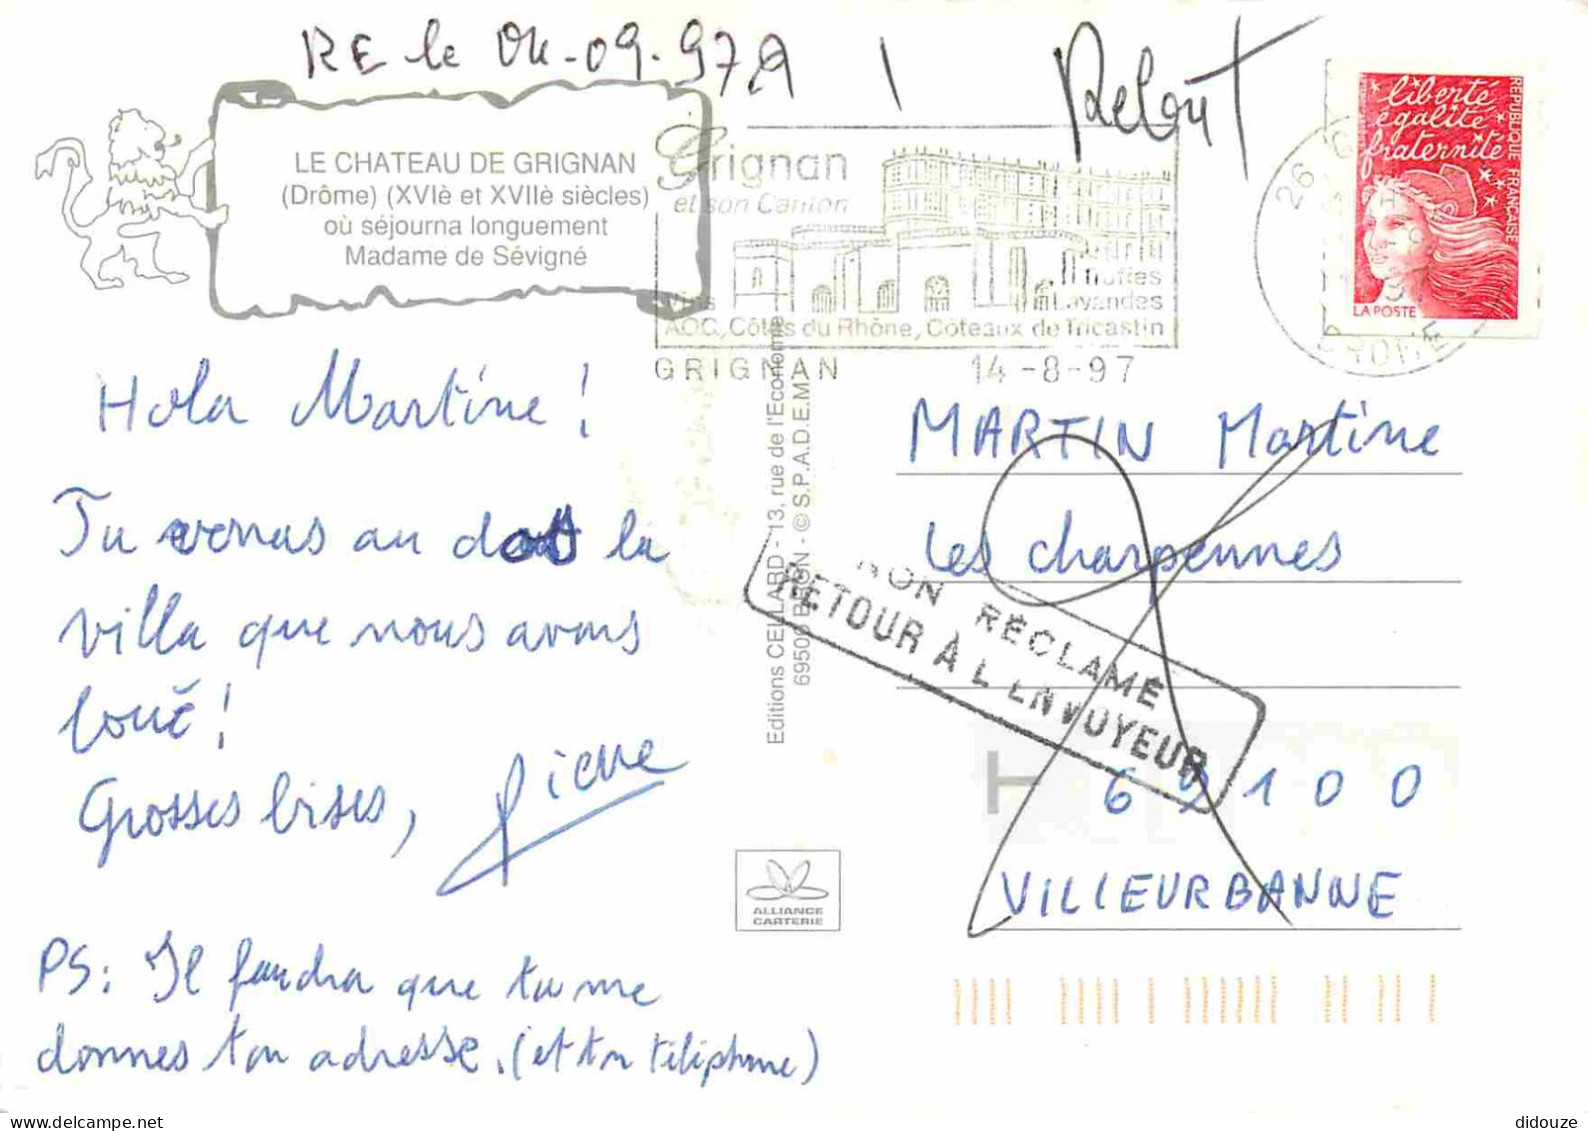 RE le 04-09-97
LE CHATEAU DE GRIGNAN
(Drôme) (XVIè et XVIIè siècles)
où séjourna longuement
Madame de Sévigné
Grignan
et son Canton
Truffes
Vins Lavandes
AOC, Côtes du Rhône, Côteaux de Tricastin
GRIGNAN 14-8-97
26
DROME
liberté
égalité
fraternité
REPUBLIQUE FRANÇAISE
LA POSTE
Hola Martine!
Tu verras au dos la
villa que nous avons
loué!
Grosses bises,
PS: Il faudra que tu me
donnes ton adresse. (et ton téléphone)
Editions CELLARD - 13, rue de l'Economie
69500 BRON - © S.P.A.D.E.M.
ALLIANCE
CARTERIE
MARTIN Martine
Les charpennes
NON RÉCLAMÉ
RETOUR À L ENVOYEUR
69100
VILLEURBANNE
didouze